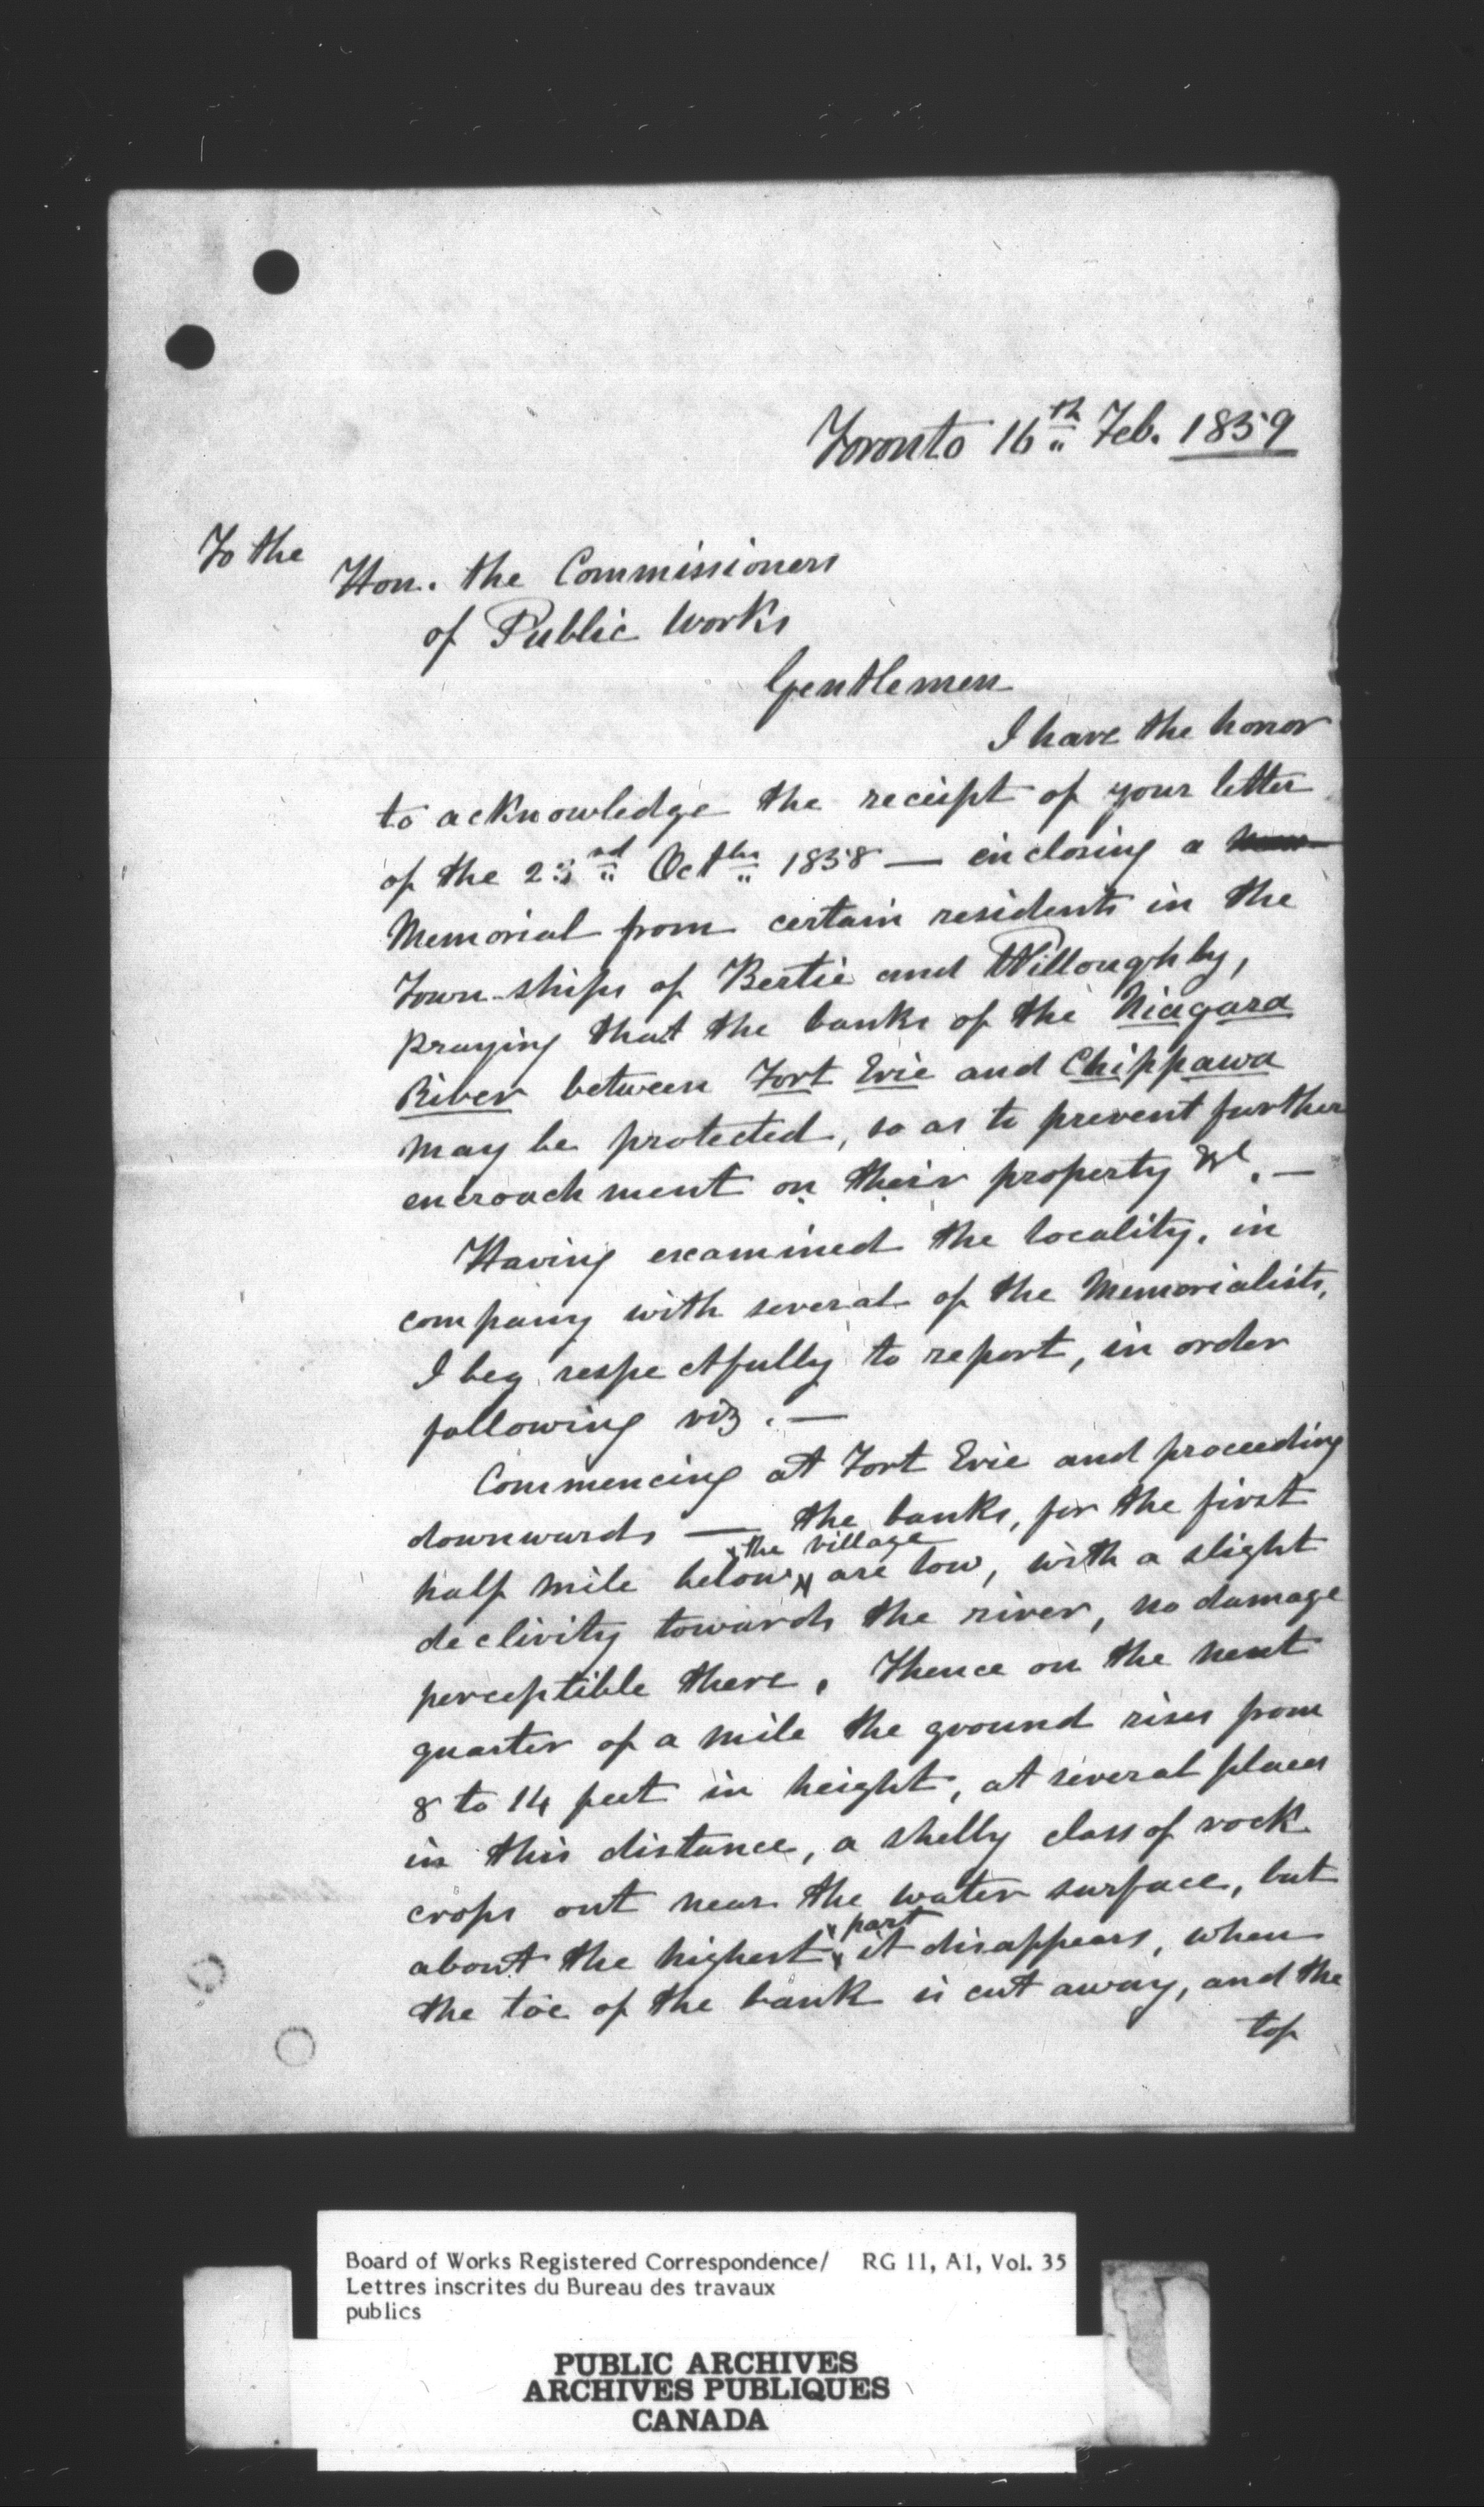 Toronto 16th Feb. 1859
To the
Hon. the Commissioners
of Public Works
Gentlemen
I have the honor
to acknowledge the receipt of your letter
of the 23rd Octbr 1858 — enclosing a
Memorial from certain residents in the
Town-ships of Bertie and Willoughby,
praying that the banks of the Niagara
River between Fort Erie and Chippawa
may be protected, so as to prevent further
encroachment on their property &c. —
Having examined the locality, in
company with several of the Memorialists,
I beg respectfully to report, in order
following viz. —
Commencing at Fort Erie and proceeding
downwards — the banks, for the first
half mile below the village are low, with a slight
declivity towards the river, no damage
perceptible there. Thence on the next
quarter of a mile the ground rises from
8 to 14 feet in height, at several places
in this distance, a shelly class of rock
crops out near the water surface, but
about the highest part it disappears, when
the toe of the bank is cut away, and the
top
Board of Works Registered Correspondence/ RG 11, A1, Vol. 35
Lettres inscrites du Bureau des travaux
publics
PUBLIC ARCHIVES
ARCHIVES PUBLIQUES
CANADA